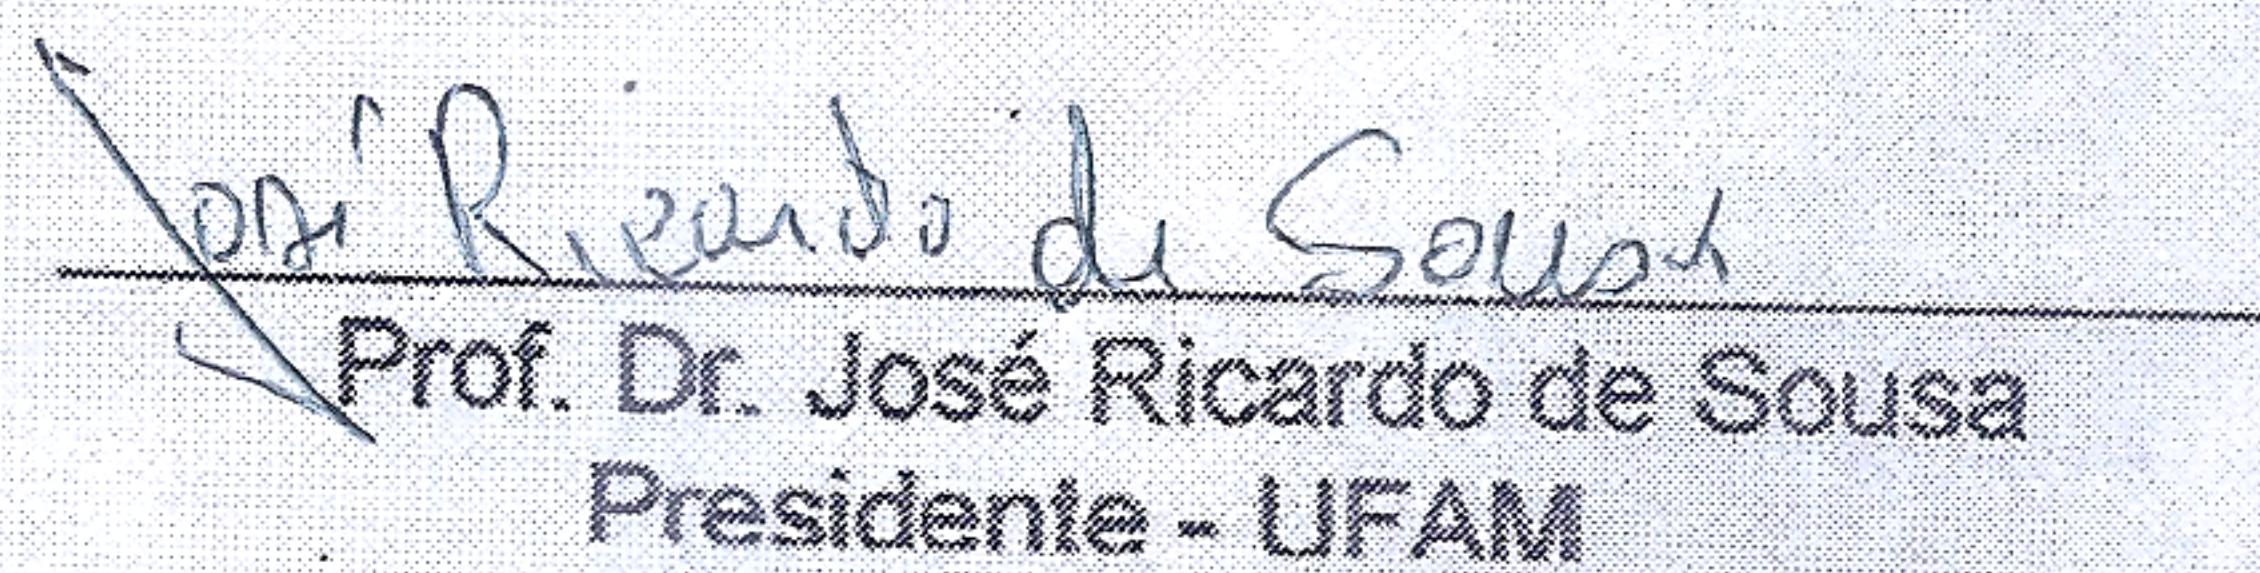 José Ricardo de Sousa
Prof. Dr. José Ricardo de Sousa
Presidente - UFAM